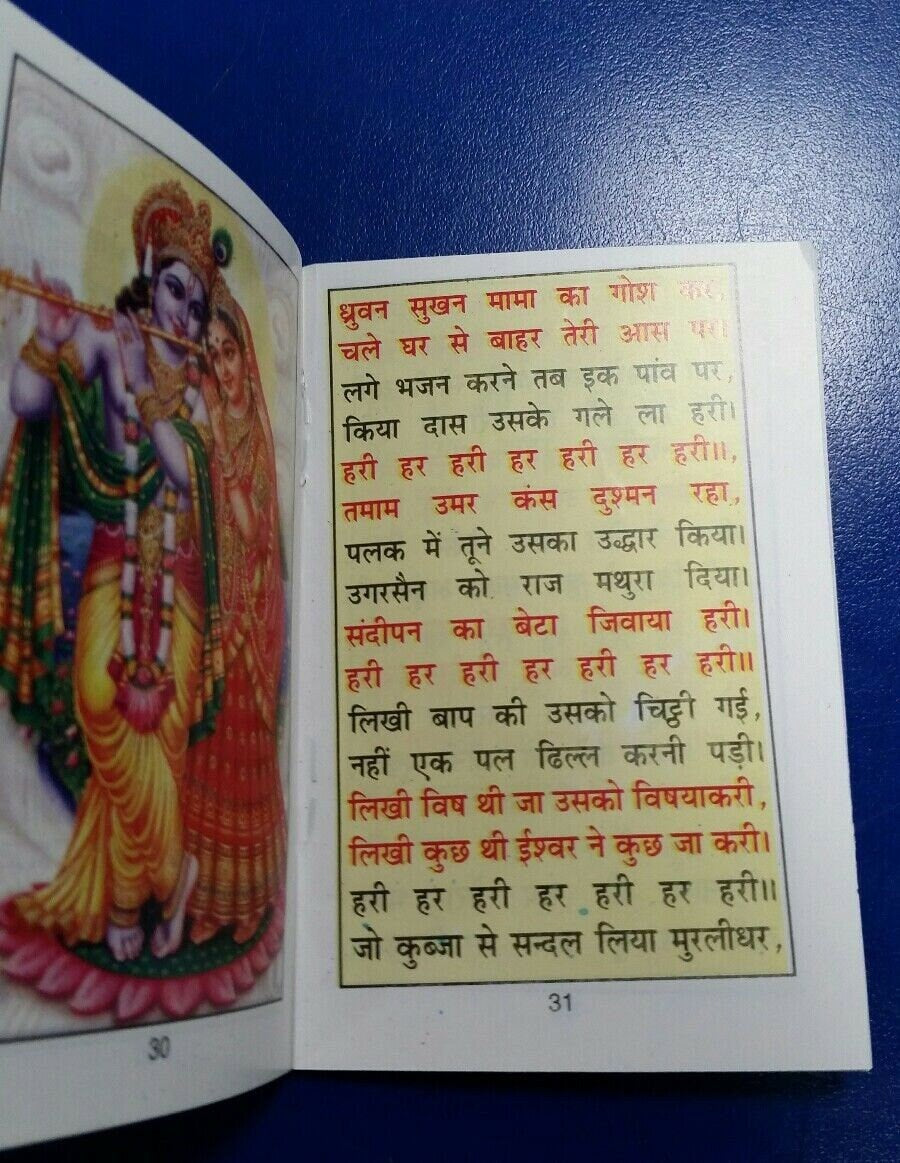 ध्रुवन सुखन मामा का गोश कर,
चले घर से बाहर तेरी आस पर।
लगे भजन करने तब इक पांव पर,
किया दास उसके गले ला हरी।
हरी हर हरी हर हरी हर हरी॥,
तमाम उमर कंस दुश्मन रहा,
पलक में तूने उसका उद्धार किया।
उगरसैन को राज मथुरा दिया।
संदीपन का बेटा जिवाया हरी।
हरी हर हरी हर हरी हर हरी॥
लिखी बाप की उसको चिट्ठी गई,
नहीं एक पल ढिल्ल करनी पड़ी।
लिखी विष थी जा उसको विषयाकरी,
लिखी कुछ थी ईश्वर ने कुछ जा करी।
हरी हर हरी हर हरी हर हरी॥
जो कुब्जा से सन्दल लिया मुरलीधर,
31
30